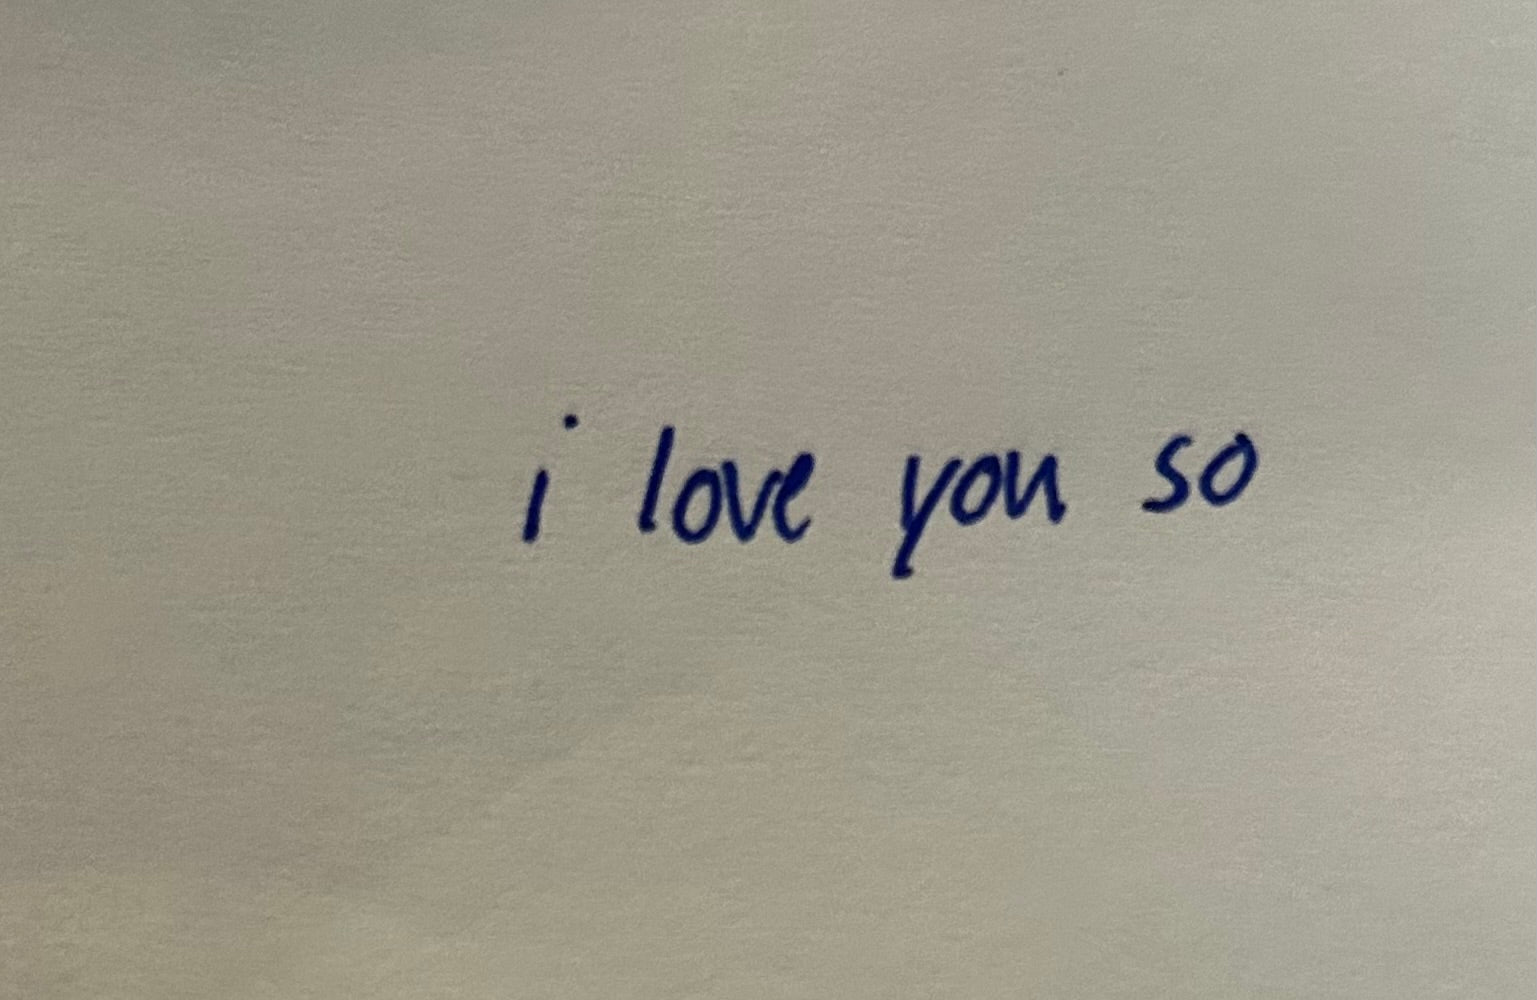 i love you so